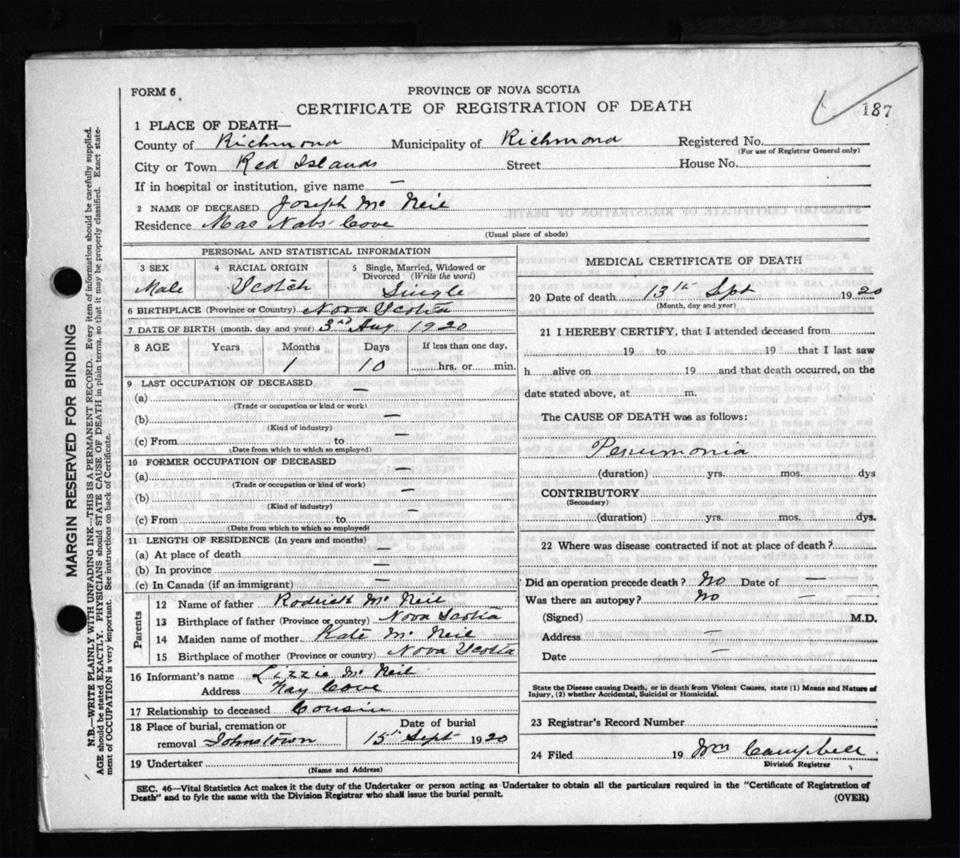 FORM 6
PROVINCE OF NOVA SCOTIA
CERTIFICATE OF REGISTRATION OF DEATH
187
1 PLACE OF DEATH—
County of Richmond Municipality of Richmond Registered No.
(For use of Registrar General only)
City or Town Red Islands Street House No.
If in hospital or institution, give name —
2 NAME OF DECEASED Joseph Mc Neil
Residence Mac Nabs Cove
(Usual place of abode)
PERSONAL AND STATISTICAL INFORMATION
3 SEX
Male
4 RACIAL ORIGIN
Scotch
5 Single, Married, Widowed or Divorced (Write the word)
Single
6 BIRTHPLACE (Province or Country) Nova Scotia
7 DATE OF BIRTH (month, day and year) 3rd Aug 1920
8 AGE Years Months Days If less than one day,
1 10 hrs. or min.
9 LAST OCCUPATION OF DECEASED
(a) —
(Trade or occupation or kind or work)
(b) —
(Kind of industry)
(c) From to —
(Date from which to which so employed)
10 FORMER OCCUPATION OF DECEASED
(a) —
(Trade or occupation or kind of work)
(b) —
(Kind of industry)
(c) From to —
(Date from which to which so employed)
11 LENGTH OF RESIDENCE (In years and months)
(a) At place of death —
(b) In province —
(c) In Canada (if an immigrant) —
Parents
12 Name of father Roderick Mc Neil
13 Birthplace of father (Province or country) Nova Scotia
14 Maiden name of mother Kate Mc Neil
15 Birthplace of mother (Province or country) Nova Scotia
16 Informant's name Lizzie Mc Neil
Address Hay Cove
17 Relationship to deceased Cousin
18 Place of burial, cremation or removal Johnstown
Date of burial
15th Sept 1920
19 Undertaker
(Name and Address)
MEDICAL CERTIFICATE OF DEATH
20 Date of death 13th Spt 1920
(Month, day and year)
21 I HEREBY CERTIFY, that I attended deceased from
19 to 19 that I last saw
h alive on 19 and that death occurred, on the
date stated above, at m.
The CAUSE OF DEATH was as follows:
Penumonia
(duration) yrs. mos. dys
CONTRIBUTORY
(Secondary)
(duration) yrs. mos. dys.
22 Where was disease contracted if not at place of death?
Did an operation precede death? No Date of —
Was there an autopsy? No —
(Signed) — M.D.
Address —
Date —
State the Disease causing Death, or in death from Violent Causes, state (1) Means and Nature of
Injury, (2) whether Accidental, Suicidal or Homicidal.
23 Registrar's Record Number
24 Filed 19 Wm Campbell
Division Registrar
SEC. 46—Vital Statistics Act makes it the duty of the Undertaker or person acting as Undertaker to obtain all the particulars required in the "Certificate of Registration of
Death" and to fyle the same with the Division Registrar who shall issue the burial permit.
(OVER)
MARGIN RESERVED FOR BINDING
N.B.—WRITE PLAINLY WITH UNFADING INK—THIS IS A PERMANENT RECORD. Every item of information should be carefully supplied.
AGE should be stated EXACTLY. PHYSICIANS should STATE CAUSE OF DEATH in plain terms, so that it may be properly classified. Exact state-
ment of OCCUPATION is very important. See instructions on back of Certificate.